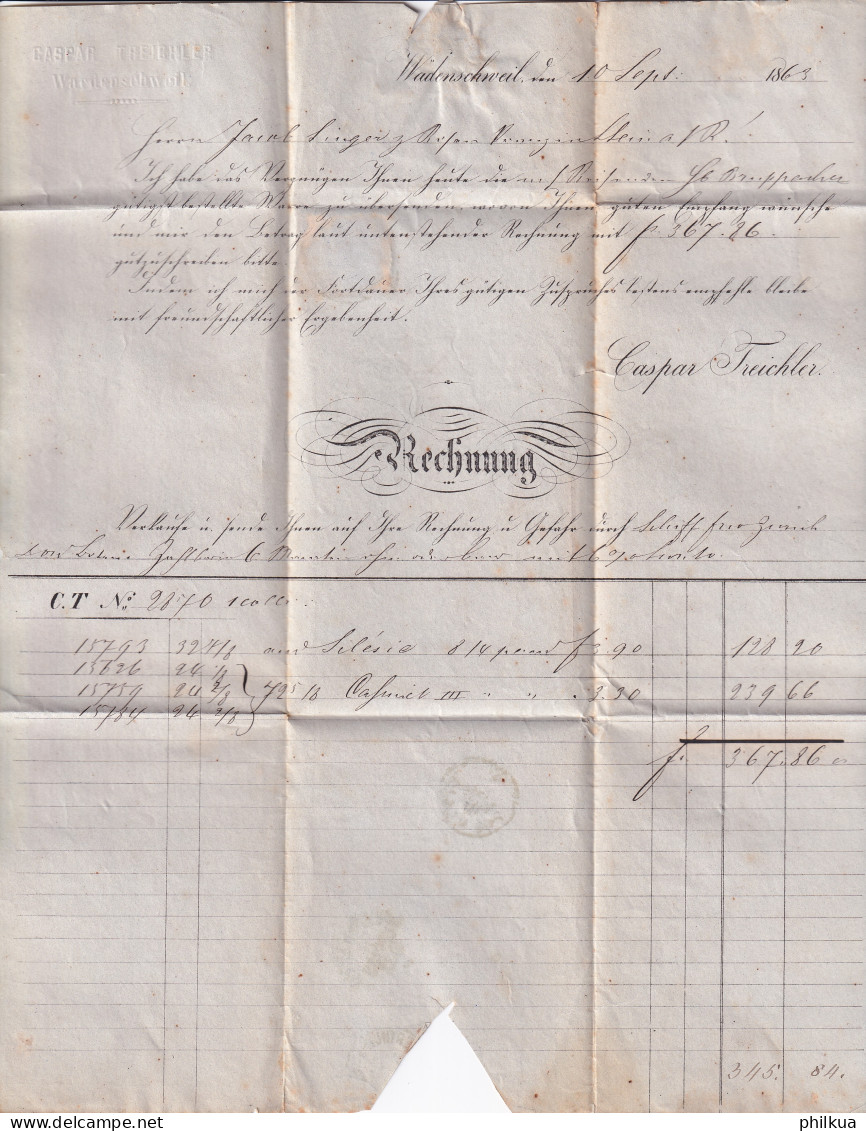 CASPAR TREICHLER
Waedenschweil
Wädenschweil, den 10 Sept: 1863
Herrn Jacob Singer z. Rosen Stein a/R.
Ich habe das Vergnügen Ihnen heute die m/ Reisenden Hb Bruppacher
gütigst bestellte Waare zu übersenden, wovon Ihnen guten Empfang wünsche
und mir den Betrag laut untenstehender Rechnung mit fs. 367. 26.
gutzuschreiben bitte
Indem ich mich der Fortdauer Ihres gütigen Zuspruches bestens empfehle bleibe
mit freundschaftlicher Ergebenheit.
Caspar Treichler.
Rechnung
Verkaufe u. sende Ihnen auf Ihre Rechnung u Gefahr durch Schiff
Zahlbar 6 Monate oder mit 6 % Sconto.
C.T No. 2870 1 Collo:
15793 32 4/8 Silésie 8/4 f 3.90 128 20
15626 24 1/8
15759 24 2/8 725/8 Casinet III " " " 3.30 239 66
15784 24 2/8
f. 367. 86
345. 84.
philkua